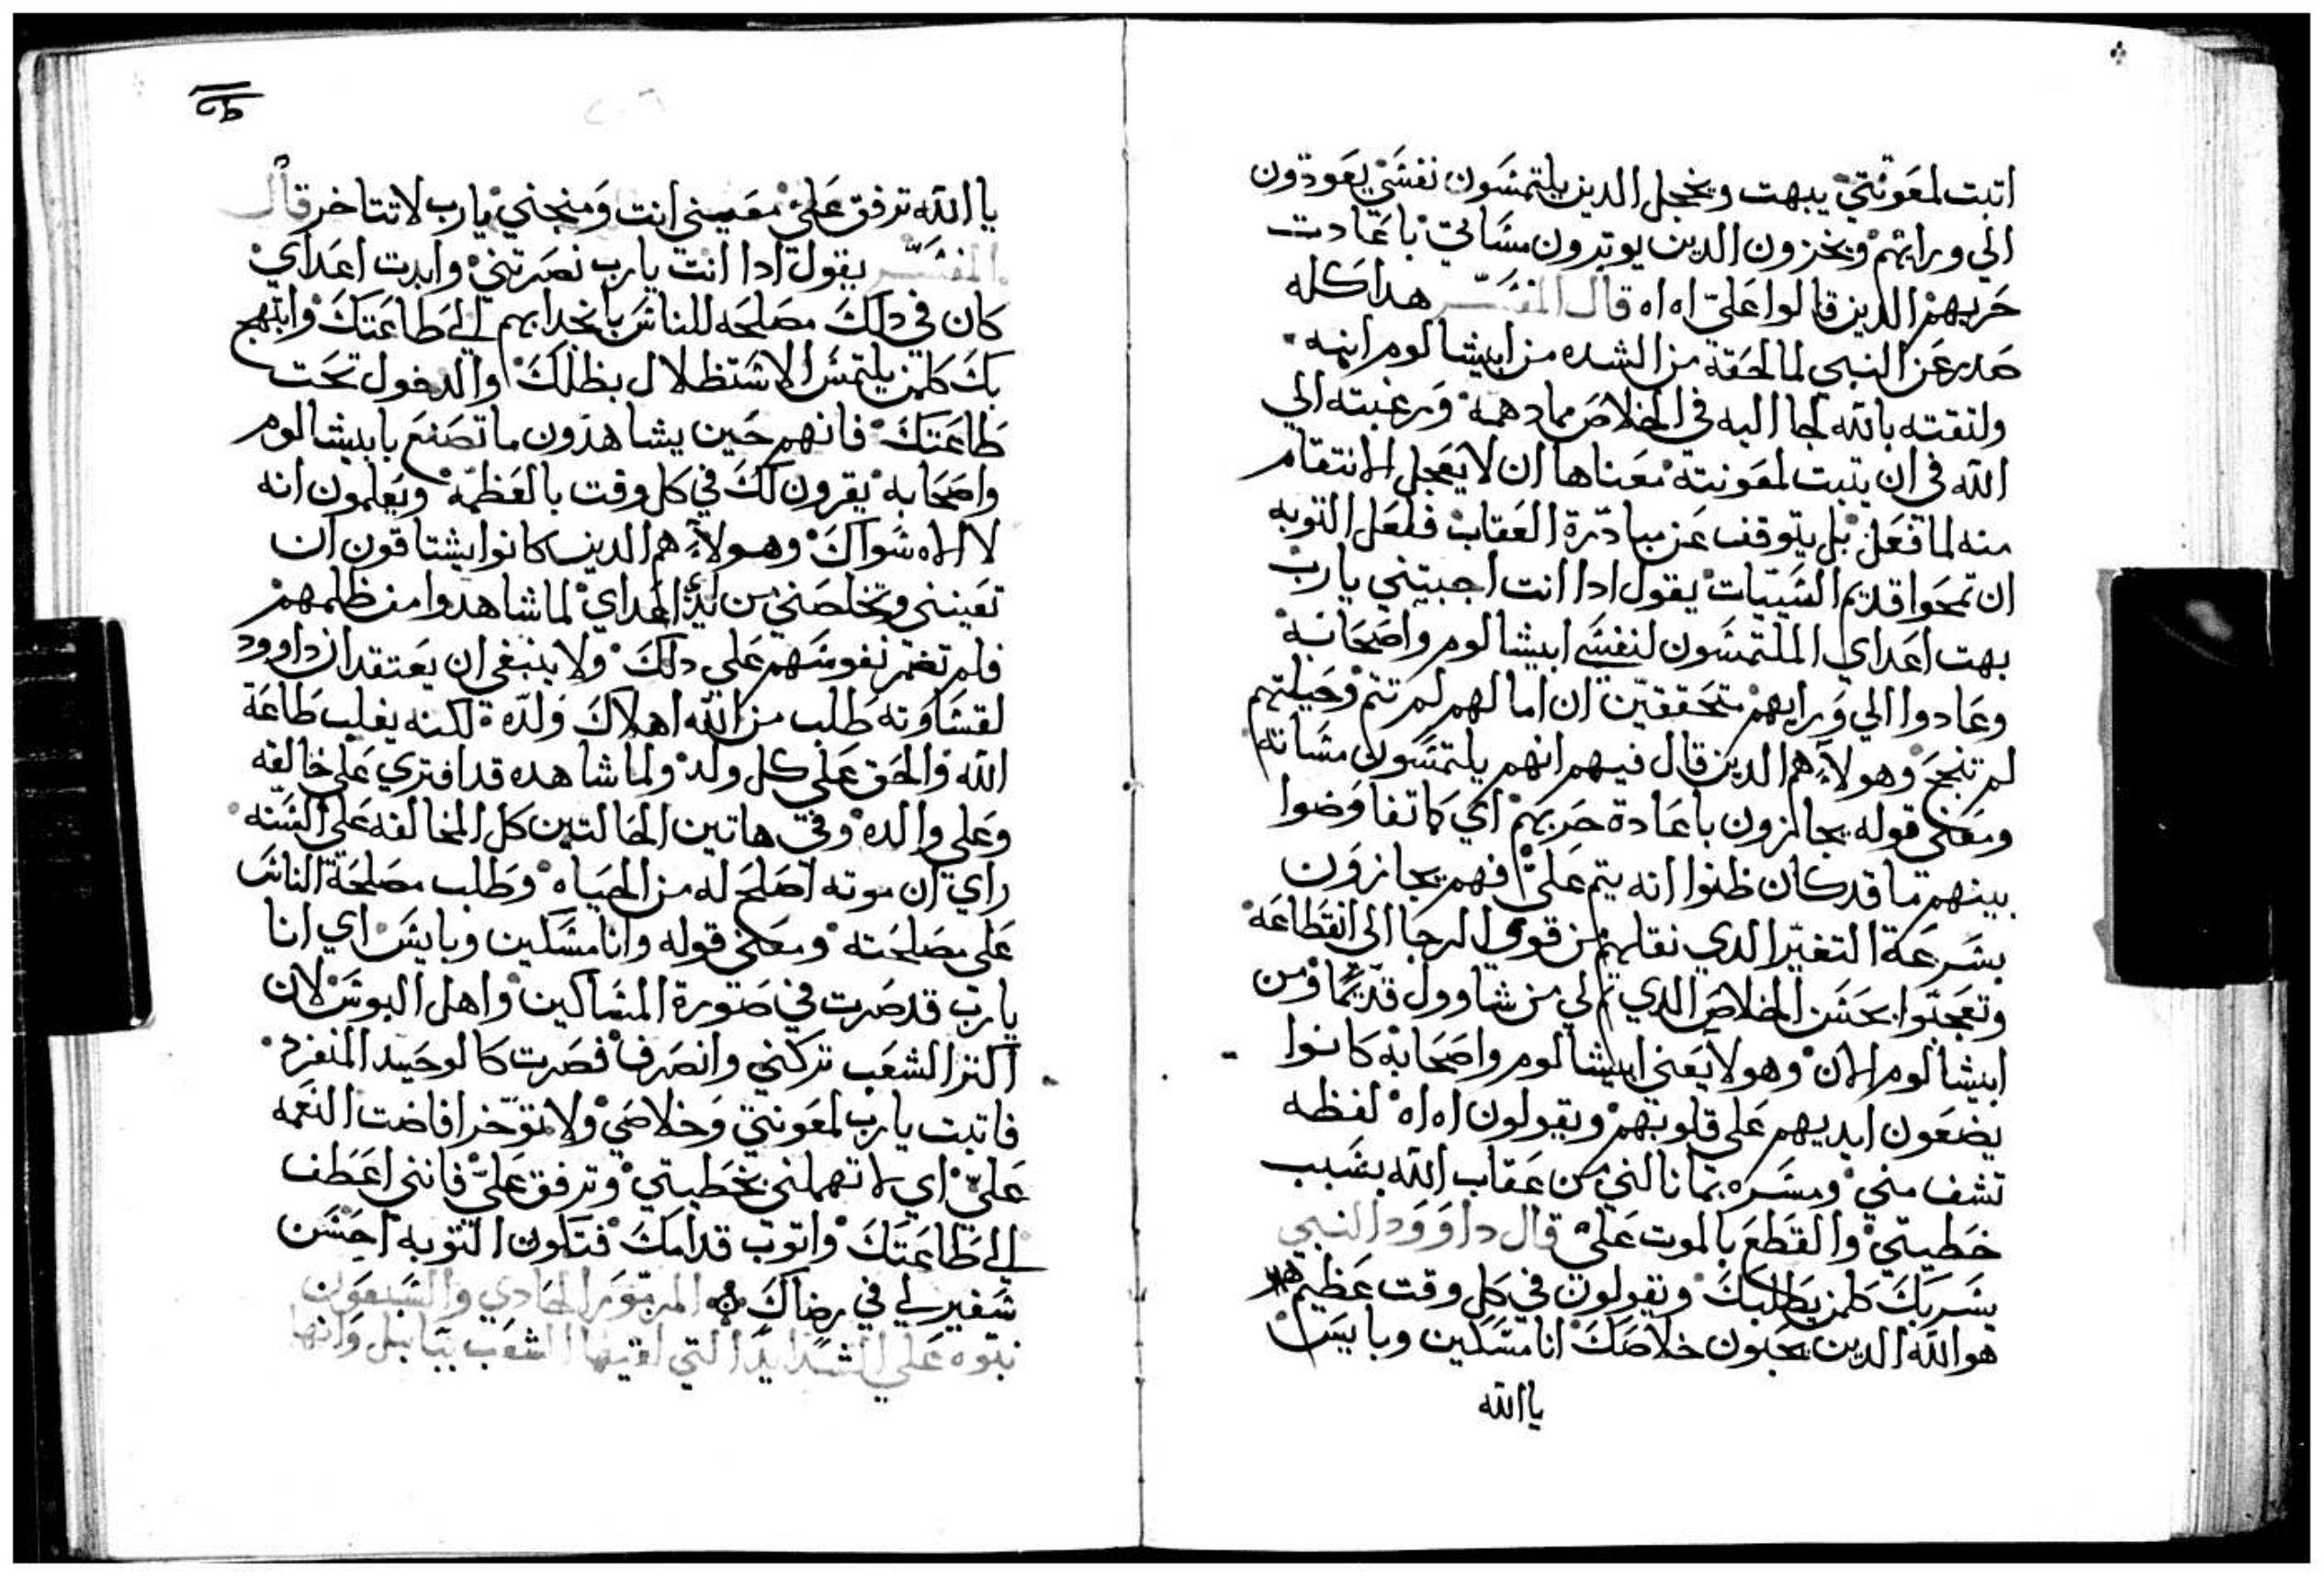 اتبت لمعونتي يبهت ويخجل الدين يلتمسون نفسي يعودون
الي ورايهم ويخزون الدين يوترون مساتي باعادت
خزيهم الدين قالوا علي اه اه قال المفسر هدا كله
صدر عن النبي لما لحقة من الشده من ابيشالوم ابنه
ولتقته بالله لجا اليه في الخلاص مما دهمه ورغبته الي
الله في ان يتبت لمعونته معناها ان لا يعجل الانتقام
منه لما فعل بل يتوقف عن مبادرة العقاب فلعل التوبه
ان تمحوا قديم السيات يقول ادا انت اجبتني يارب
بهت اعداي الملتمسون لنفسي ابيشالوم واصحابه
وعادوا الي ورايهم متحققين ان امالهم لم تتم وحيلتهم
لم تنجح وهولاء هم الدين قال فيهم انهم يلتمسون مساته
ومعني قوله يجازون باعادة خزيهم اي كما تفاوضوا
بينهم ما قد كان ظنوا انه يتم علي فهم يجازون
بسرعة التغير الدي نقلهم من قوي الرجا الي انقطاعه
وتعجبوا بحسن الخلاص الدي تم لي من شاوول قديما ومن
ابيشالوم الان وهولا يعني ابيشالوم واصحابه كانوا
يضعون ايديهم علي قلوبهم ويقولون اه اه لفظه
تشف مني ومسره بما نالني من عقاب الله بسبب
خطيتي والقطع بالموت علي قال داوود النبي
يسر بك كلمن يطلبك ويقولون في كل وقت عظيم
هو الله الدين يحبون خلاصك انا مسكين وبايس
ياالله
يا الله ترفق علي معيني انت ومنجني يارب لا تتاخر قال
المفسر يقول ادا انت يارب نصرتني وابدت اعداي
كان في دلك مصلحه للناس بانجدابهم الي طاعتك وابتهج
بك كلمن يلتمس الاستظلال بظلك والدخول تحت
طاعتك فانهم حين يشاهدون ما تصنع بابيشالوم
واصحابه يقرون لك في كل وقت بالعظمه ويعلمون انه
لا اله سواك وهولاء هم الدين كانوا يشتاقون ان
تعينني وتخلصني من يد اعداي لما شاهدوا من ظلمهم
فلم تغمر نفوسهم علي دلك ولا ينبغي ان يعتقد ان داوود
لقساوته طلب من الله اهلاك ولده لكنه يغلب طاعة
الله والحق علي كل ولد ولما شاهده قد افتري علي خالقه
وعلي والده وفي هاتين الحالتين كل المخالفه علي السنه
راي ان موته اصلح له من الحياه وطلب مصلحة الناس
علي مصلحته ومعني قوله وانا مسكين وبايس اي انا
يارب قد صرت في صورة المساكين واهل البوس لان
اكتر الشعب تركني وانصرف فصرت كالوحيد المنفرد
فاتبت يارب لمعونتي وخلاصي ولا توخر افاضت النعمه
علي اي لا تهملني بخطيتي وترفق علي فانني اعطف
الي طاعتك واتوب قدامك فتكون التوبه احسن
سفير لي في رضاك المزمور الحادي والسبعون
نبوه علي الشدايد التي لقيها الشعب ببابل وانها